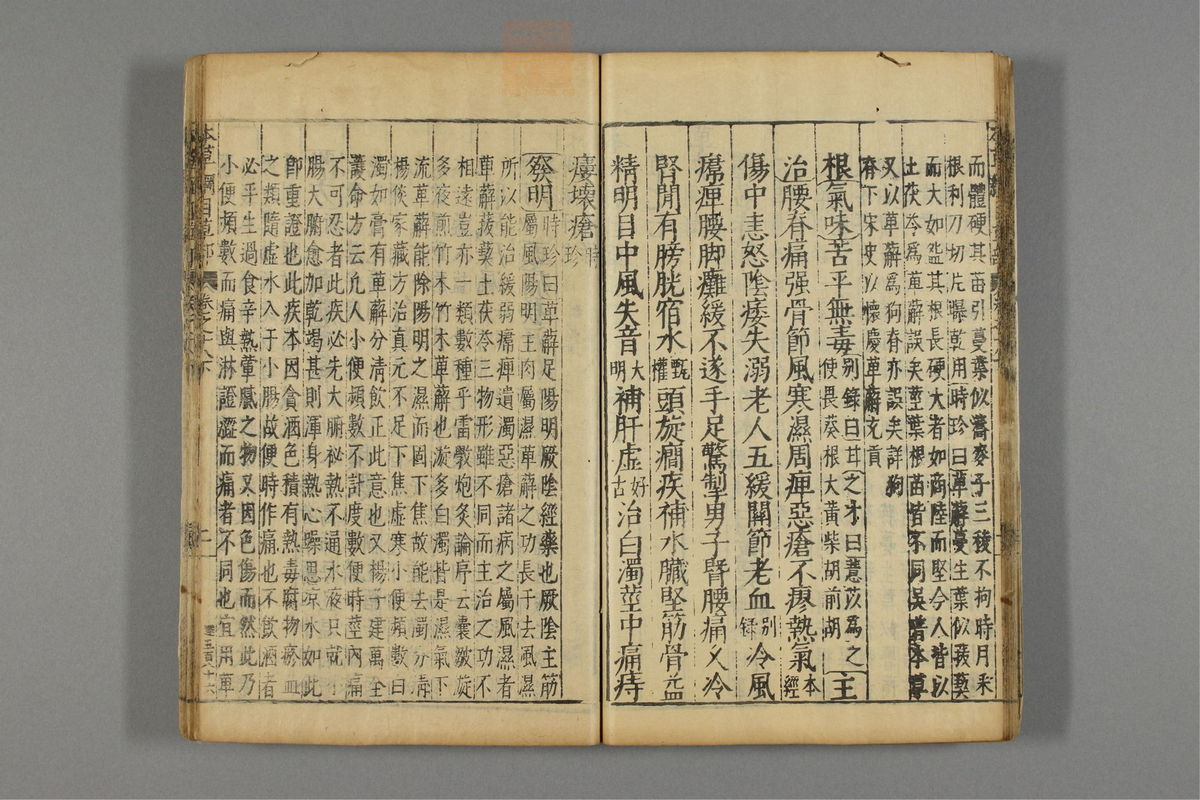 而體硬其苗引蔓葉似蕎麥子三稜不拘時月采
根利刀切片曝乾用時珍曰萆薢蔓生葉似菝葜
而大如盌其根長硬大者如商陸而堅今人皆以
土茯苓為萆薢誤矣莖葉根苗皆不同吳普本草
又以萆薢為狗脊亦誤矣詳狗
脊下宋史以懷慶萆薢充貢
根氣味苦平無毒別錄曰甘之才曰薏苡為之使畏葵根大黃柴胡前胡主
治腰脊痛强骨節風寒濕周痺惡瘡不瘳熱氣本經
傷中恚怒陰痿失溺老人五緩關節老血別錄冷風
㿏痺腰脚癱緩不遂手足驚掣男子腎腰痛久冷
腎間有膀胱宿水甄權頭旋癇疾補水臟堅筋骨益
精明目中風失音大明補肝虛好古治白濁莖中痛痔
瘻壞瘡時珍
發明時珍曰萆薢足陽明厥陰經藥也厥陰主筋
屬風陽明主肉屬濕萆薢之功長于去風濕
所以能治緩弱㿏痺遺濁惡瘡諸病之屬風濕者
萆薢菝葜土茯苓三物形雖不同而主治之功不
相遠豈亦一類數種乎雷斆炮炙論序云囊皺漩
多夜煎竹木竹木萆薢也漩多白濁皆是濕氣下
流萆薢能除陽明之濕而固下焦故能去濁分清
楊倓家藏方治真元不足下焦虛寒小便頻數白
濁如膏有萆薢分清飲正此意也又楊子建萬全
護命方云凡人小便頻數不計度數便時莖內痛
不可忍者此疾必先大腑秘熱不通水液只就小
腸大腑愈加乾竭甚則渾身熱心躁思凉水如此
即重證也此疾本因貪酒色積有熱毒腐物瘀血
之類隨虛水入于小腸故便時作痛也不飲酒者
必平生過食辛熱葷膩之物又因色傷而然此乃
小便頻數而痛與淋證澀而痛者不同也宜用萆
本草綱目草部 卷之十八下